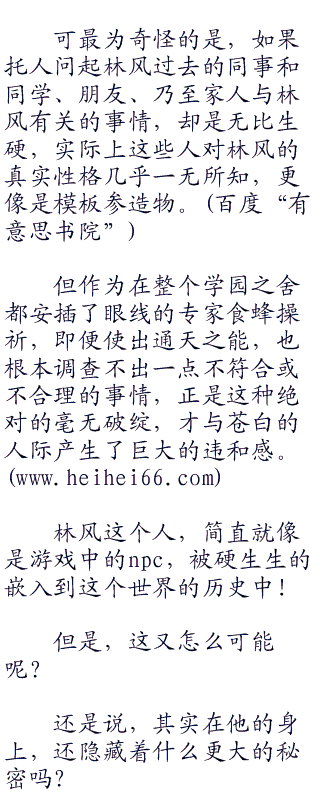 可最为奇怪的是，如果
托人问起林风过去的同事和
同学、朋友、乃至家人与林
风有关的事情，却是无比生
硬，实际上这些人对林风的
真实性格几乎一无所知，更
像是模板参造物。(百度“有
意思书院”)
但作为在整个学园之舍
都安插了眼线的专家食蜂操
祈，即便使出通天之能，也
根本调查不出一点不符合或
不合理的事情，正是这种绝
对的毫无破绽，才与苍白的
人际产生了巨大的违和感。
(www.heihei66.com)
林风这个人，简直就像
是游戏中的npc，被硬生生的
嵌入到这个世界的历史中！
但是，这又怎么可能
呢？
还是说，其实在他的身
上，还隐藏着什么更大的秘
密吗？